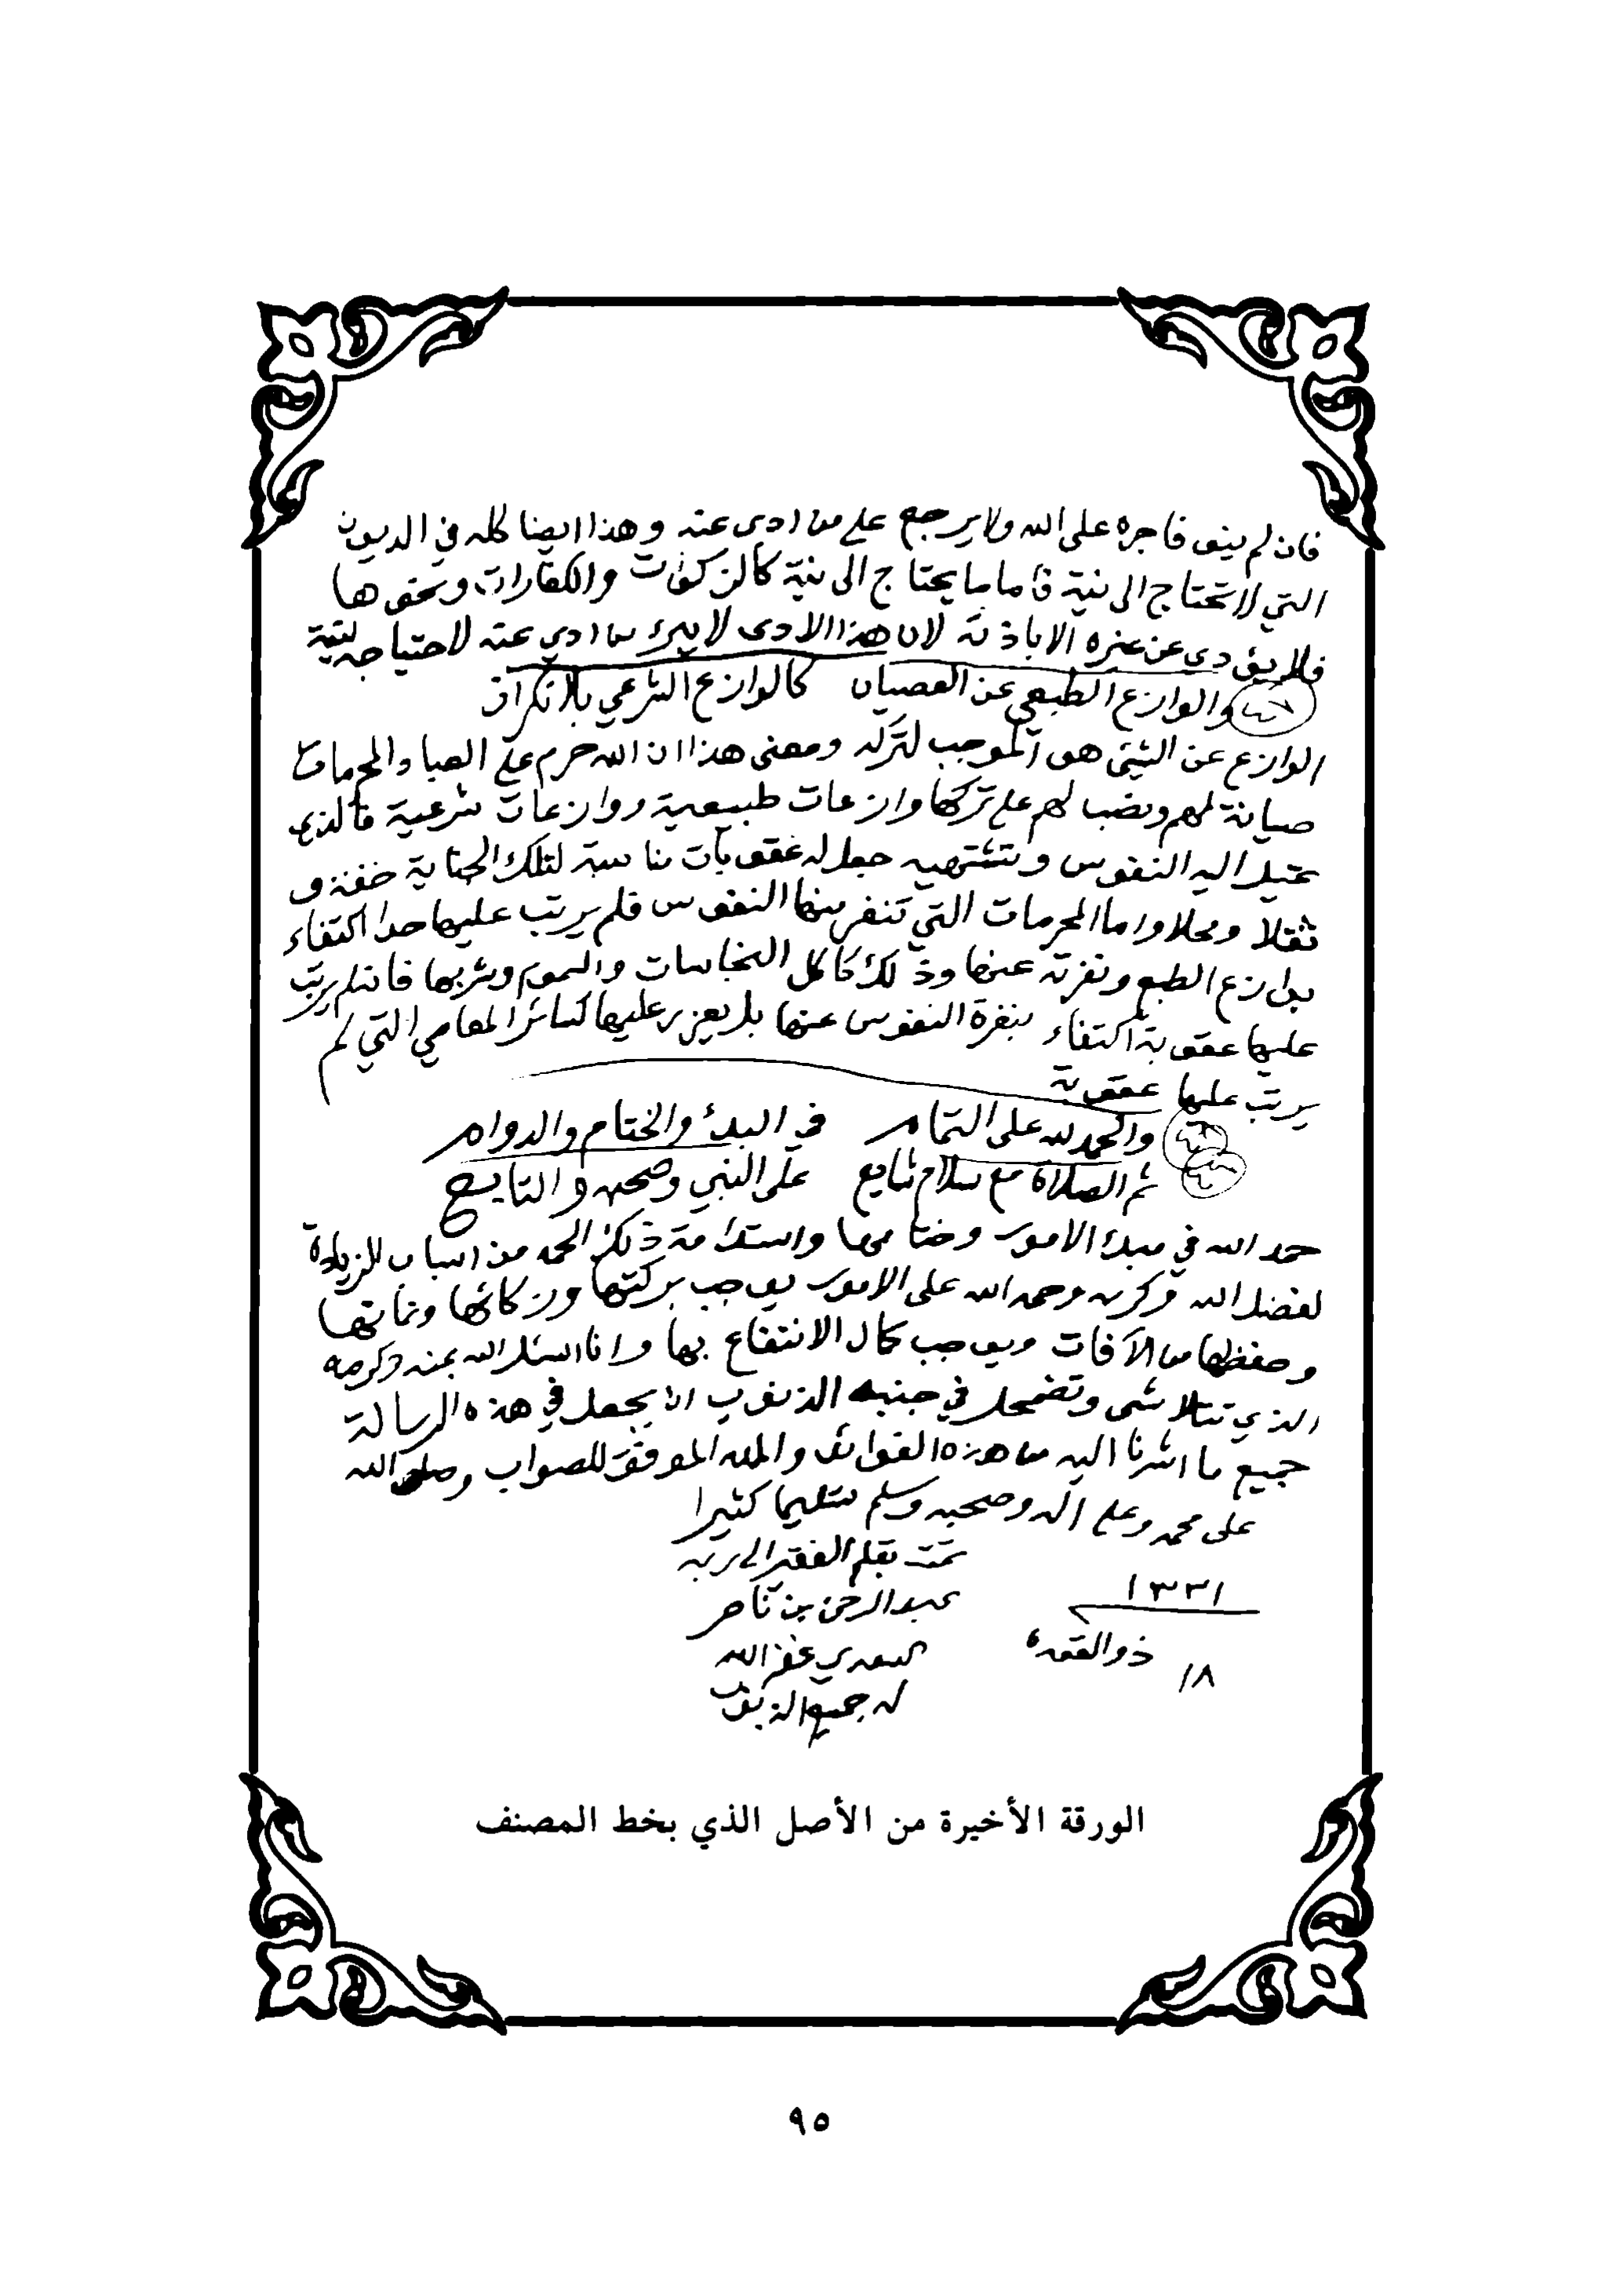 فان لم ينو فاجره على الله ولا يرجع على من ادى عنه وهذا ايضا كله في الديون
التي لا تحتاج الى نية فاما ما يحتاج الى نية كالزكوات والكفارات ونحوها
فلا يؤدي عن غيره الا باذنه لان هذا الادى لا يبرئ من ادي عنه لاحتياجه لنية
والوازع الطبعي عن العصيان كالوازع الشرعي بلا نكران
الوازع عن الشيئ هو الموجب لتركه ومعنى هذا ان الله حرم على العباد المحرمات
صيانة لهم ونصب لهم على تركها وازعات طبيعية ووازعات شرعية فالذي
تميل اليه النفوس وتشتهيه جعل له عقوبات مناسبة لتلك الجناية خفة و
ثقلا ومحلا واما المحرمات التي تنفر منها النفوس فلم يرتب عليها حدا اكتفاء
بوازع الطبع ونفرته عنها وذلك كاكل النجاسات والسموم وشربها فانه لم يرتب
عليها عقوبة اكتفاء بنفرة النفوس عنها بل يعزر عليها كسائر المعاصي التي لم
يرتب عليها عقوبة
والحمد لله على التمام في البدء والختام والدوام
ثم الصلاة مع سلام شايع على النبي وصحبه والتابع
حمد الله في مبدء الامور وختامها واستدامة ذلك الحمد من اسباب الزيادة
لفضل الله وكرمه وحمد الله على الامور يوجب بركتها وزكائها ونمائها
وحفظها من الآفات ويوجب كمال الانتفاع بها وانا اسئل الله بمنه وكرمه
الذي تتلاشى وتضمحل في جنبه الذنوب ان يجعل في هذه الرسالة
جميع ما اشرنا اليه من هذه الفوائد والله الموفق للصواب وصلى الله
على محمد وعلى آله وصحبه وسلم تسليما كثيرا
تمت بقلم الفقير الى ربه
عبد الرحمن بن ناصر
السعدي غفر الله
له جميع الذنوب
١٣٣١
ذو القعدة
١٨
الورقة الأخيرة من الأصل الذي بخط المصنف
٩٥